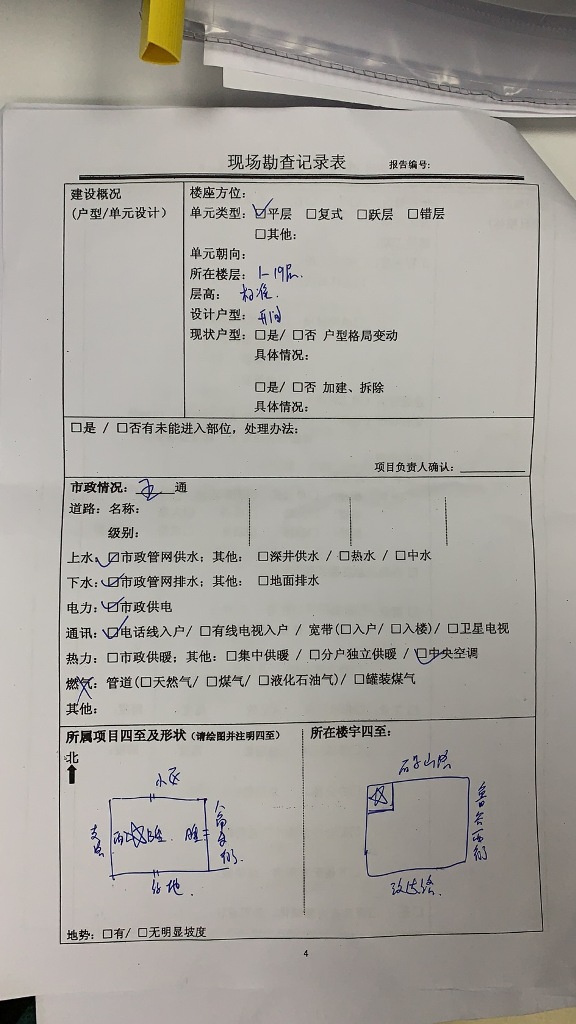 现场勘查记录表 报告编号:
建设概况
(户型/单元设计)
楼座方位:
单元类型: ☑平层 □复式 □跃层 □错层
□其他:
单元朝向:
所在楼层: 1-19层.
层高: 标准.
设计户型: 开间
现状户型: □是/ □否 户型格局变动
具体情况:
□是/ □否 加建、拆除
具体情况:
□是 / □否有未能进入部位, 处理办法:
项目负责人确认:
市政情况: 五 通
道路: 名称:
级别:
上水: ☑市政管网供水; 其他: □深井供水 / □热水 / □中水
下水: ☑市政管网排水; 其他: □地面排水
电力: ☑市政供电
通讯: ☑电话线入户/ □有线电视入户 / 宽带(□入户/ □入楼)/ □卫星电视
热力: □市政供暖; 其他: □集中供暖 / □分户独立供暖 / ☑中央空调
燃气: 管道(□天然气/ □煤气/ □液化石油气)/ □罐装煤气
其他:
所属项目四至及形状 (请绘图并注明四至)
北
小区
支路
地
所在楼宇四至:
石景山路
鲁谷西街
政达路
地势: □有/ □无明显坡度
4